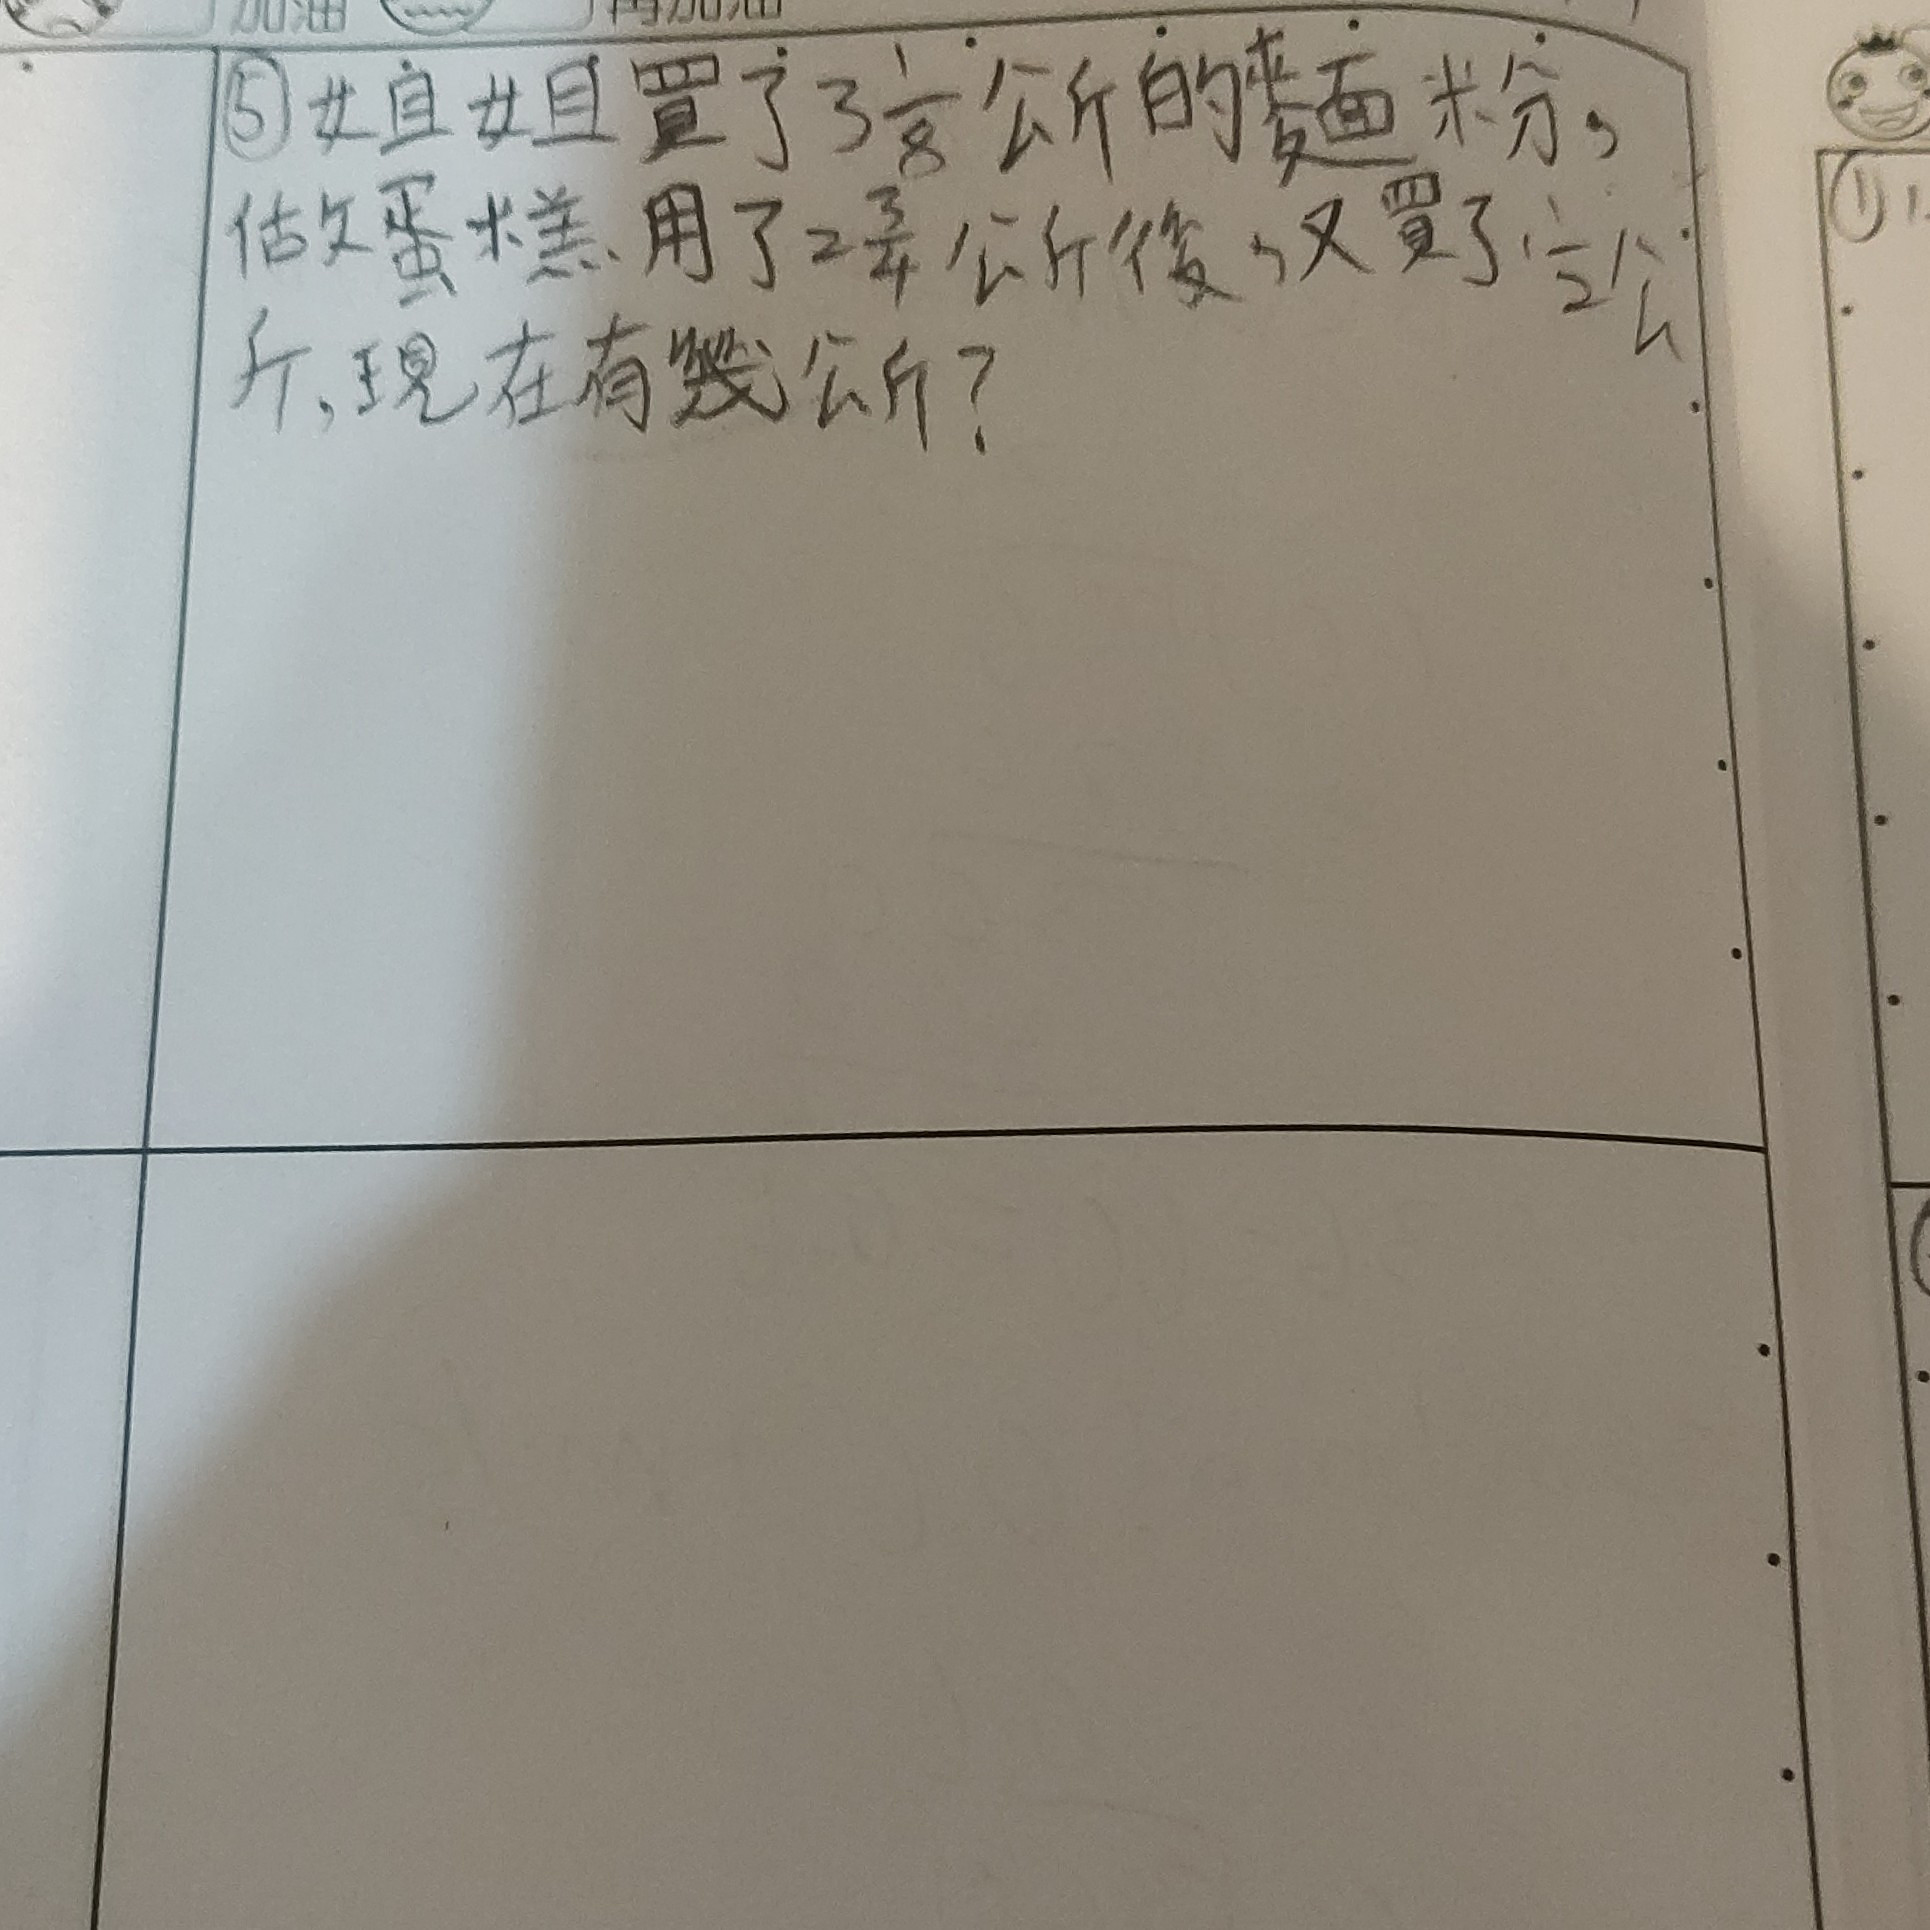 加油 再加油
⑤姐姐買了3 1/8 公斤的麵粉,
做蛋糕用了2 3/4 公斤後,又買了 1/2 公
斤,現在有幾公斤?
①